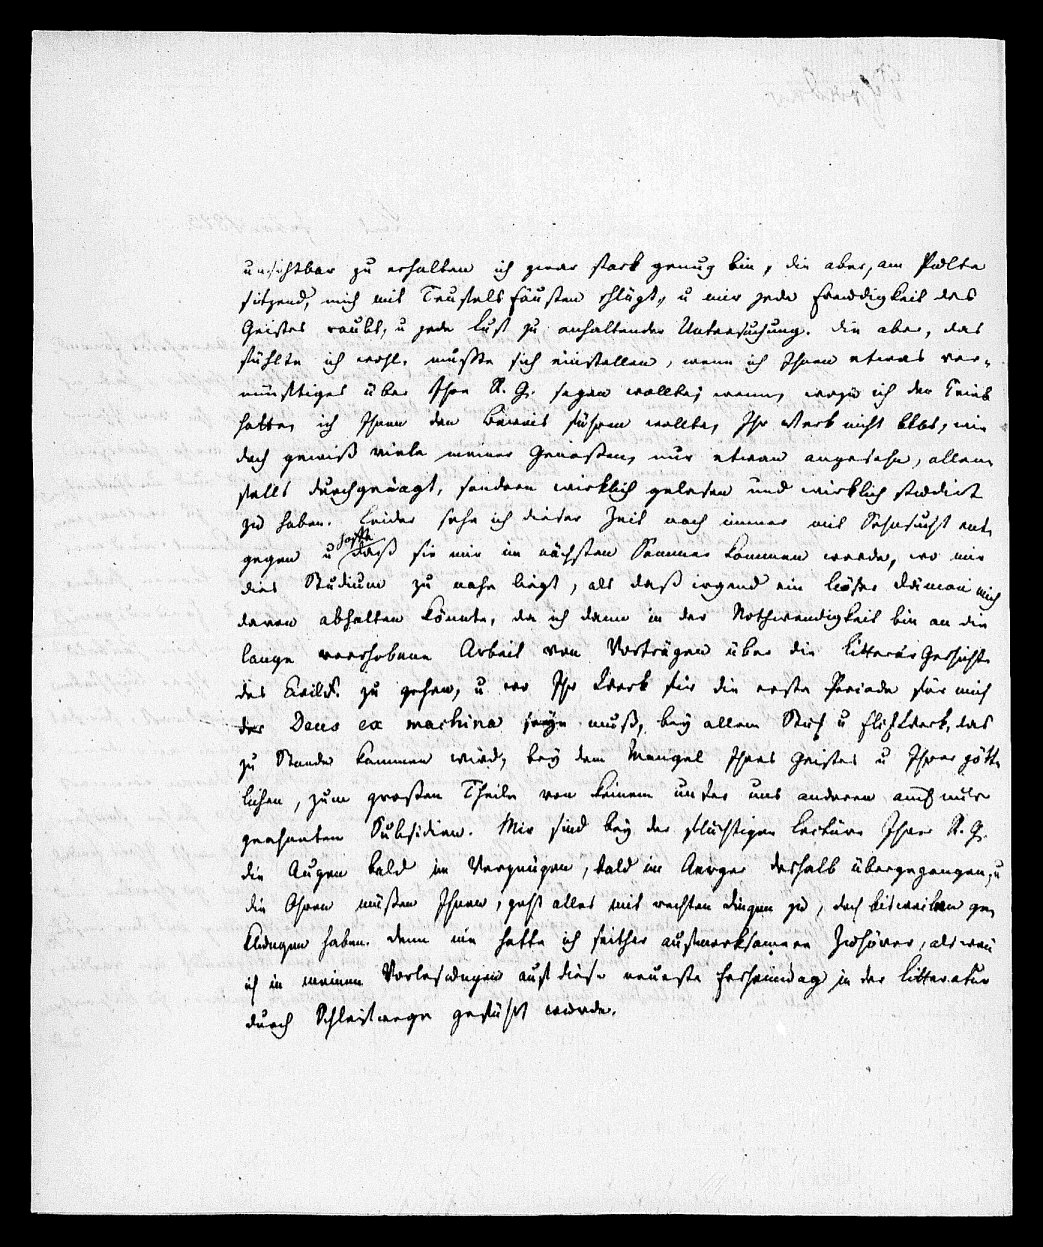 unsichtbar zu erhalten ich zwar stark genug bin, die aber, am Pulte
sitzend, mich mit Teufels Fäusten schlägt, u mir jede Freudigkeit des
Geistes raubt, u jede Lust zu anhaltender Untersuchung. Die aber, das
fühlte ich wohl, mußte sich einstellen, wenn ich Ihnen etwas ver-
nünftiges über Ihre R. G. sagen wollte; wenn, wozu ich den Trieb
hatte, ich Ihnen den Beweis führen wollte, Ihr Werk nicht blos, wie
doch gewiß viele meiner Genossen, nur etwan angesehn, allen
falls durchgenagt, sondern wirklich gelesen und wirklich studirt
zu haben. Leider sehe ich dieser Zeit noch immer mit Sehnsucht ent
gegen u hoffe daß sie mir im nächsten Sommer kommen werde, wo mir
dies Studium zu nahe liegt, als daß irgend ein böser Dämon mich
davon abhalten könnte, da ich dann in der Nothwendigkeit bin an die
lange verschobene Arbeit von Vorträgen über die litterär Geschichte
des Civilr. zu gehen, u. wo Ihr Werk für die erste Periode für mich
der Deus ex machina seyn muß, bey allem Stück u Flickwerk, das
zu Stande kommen wird, bey dem Mangel Ihres Geistes u Ihrer gött
lichen, zum großen Theile von keinem unter uns anderen auch nur
geahneten Subsidien. Mir sind bey der flüchtigen Lectüre Ihrer R. G.
die Augen bald im Vergnügen, bald im Aerger deshalb übergegangen, u
die Ohren müßen Ihnen, geht alles mit rechten dingen zu, doch bisweilen ge
klungen haben. Denn nie hatte ich seither aufmerksamere Zuhörer, als wenn
ich in meinen Vorlesungen auf diese neueste Erscheinung in der Litteratur
durch Schleifwege geführt wurde.